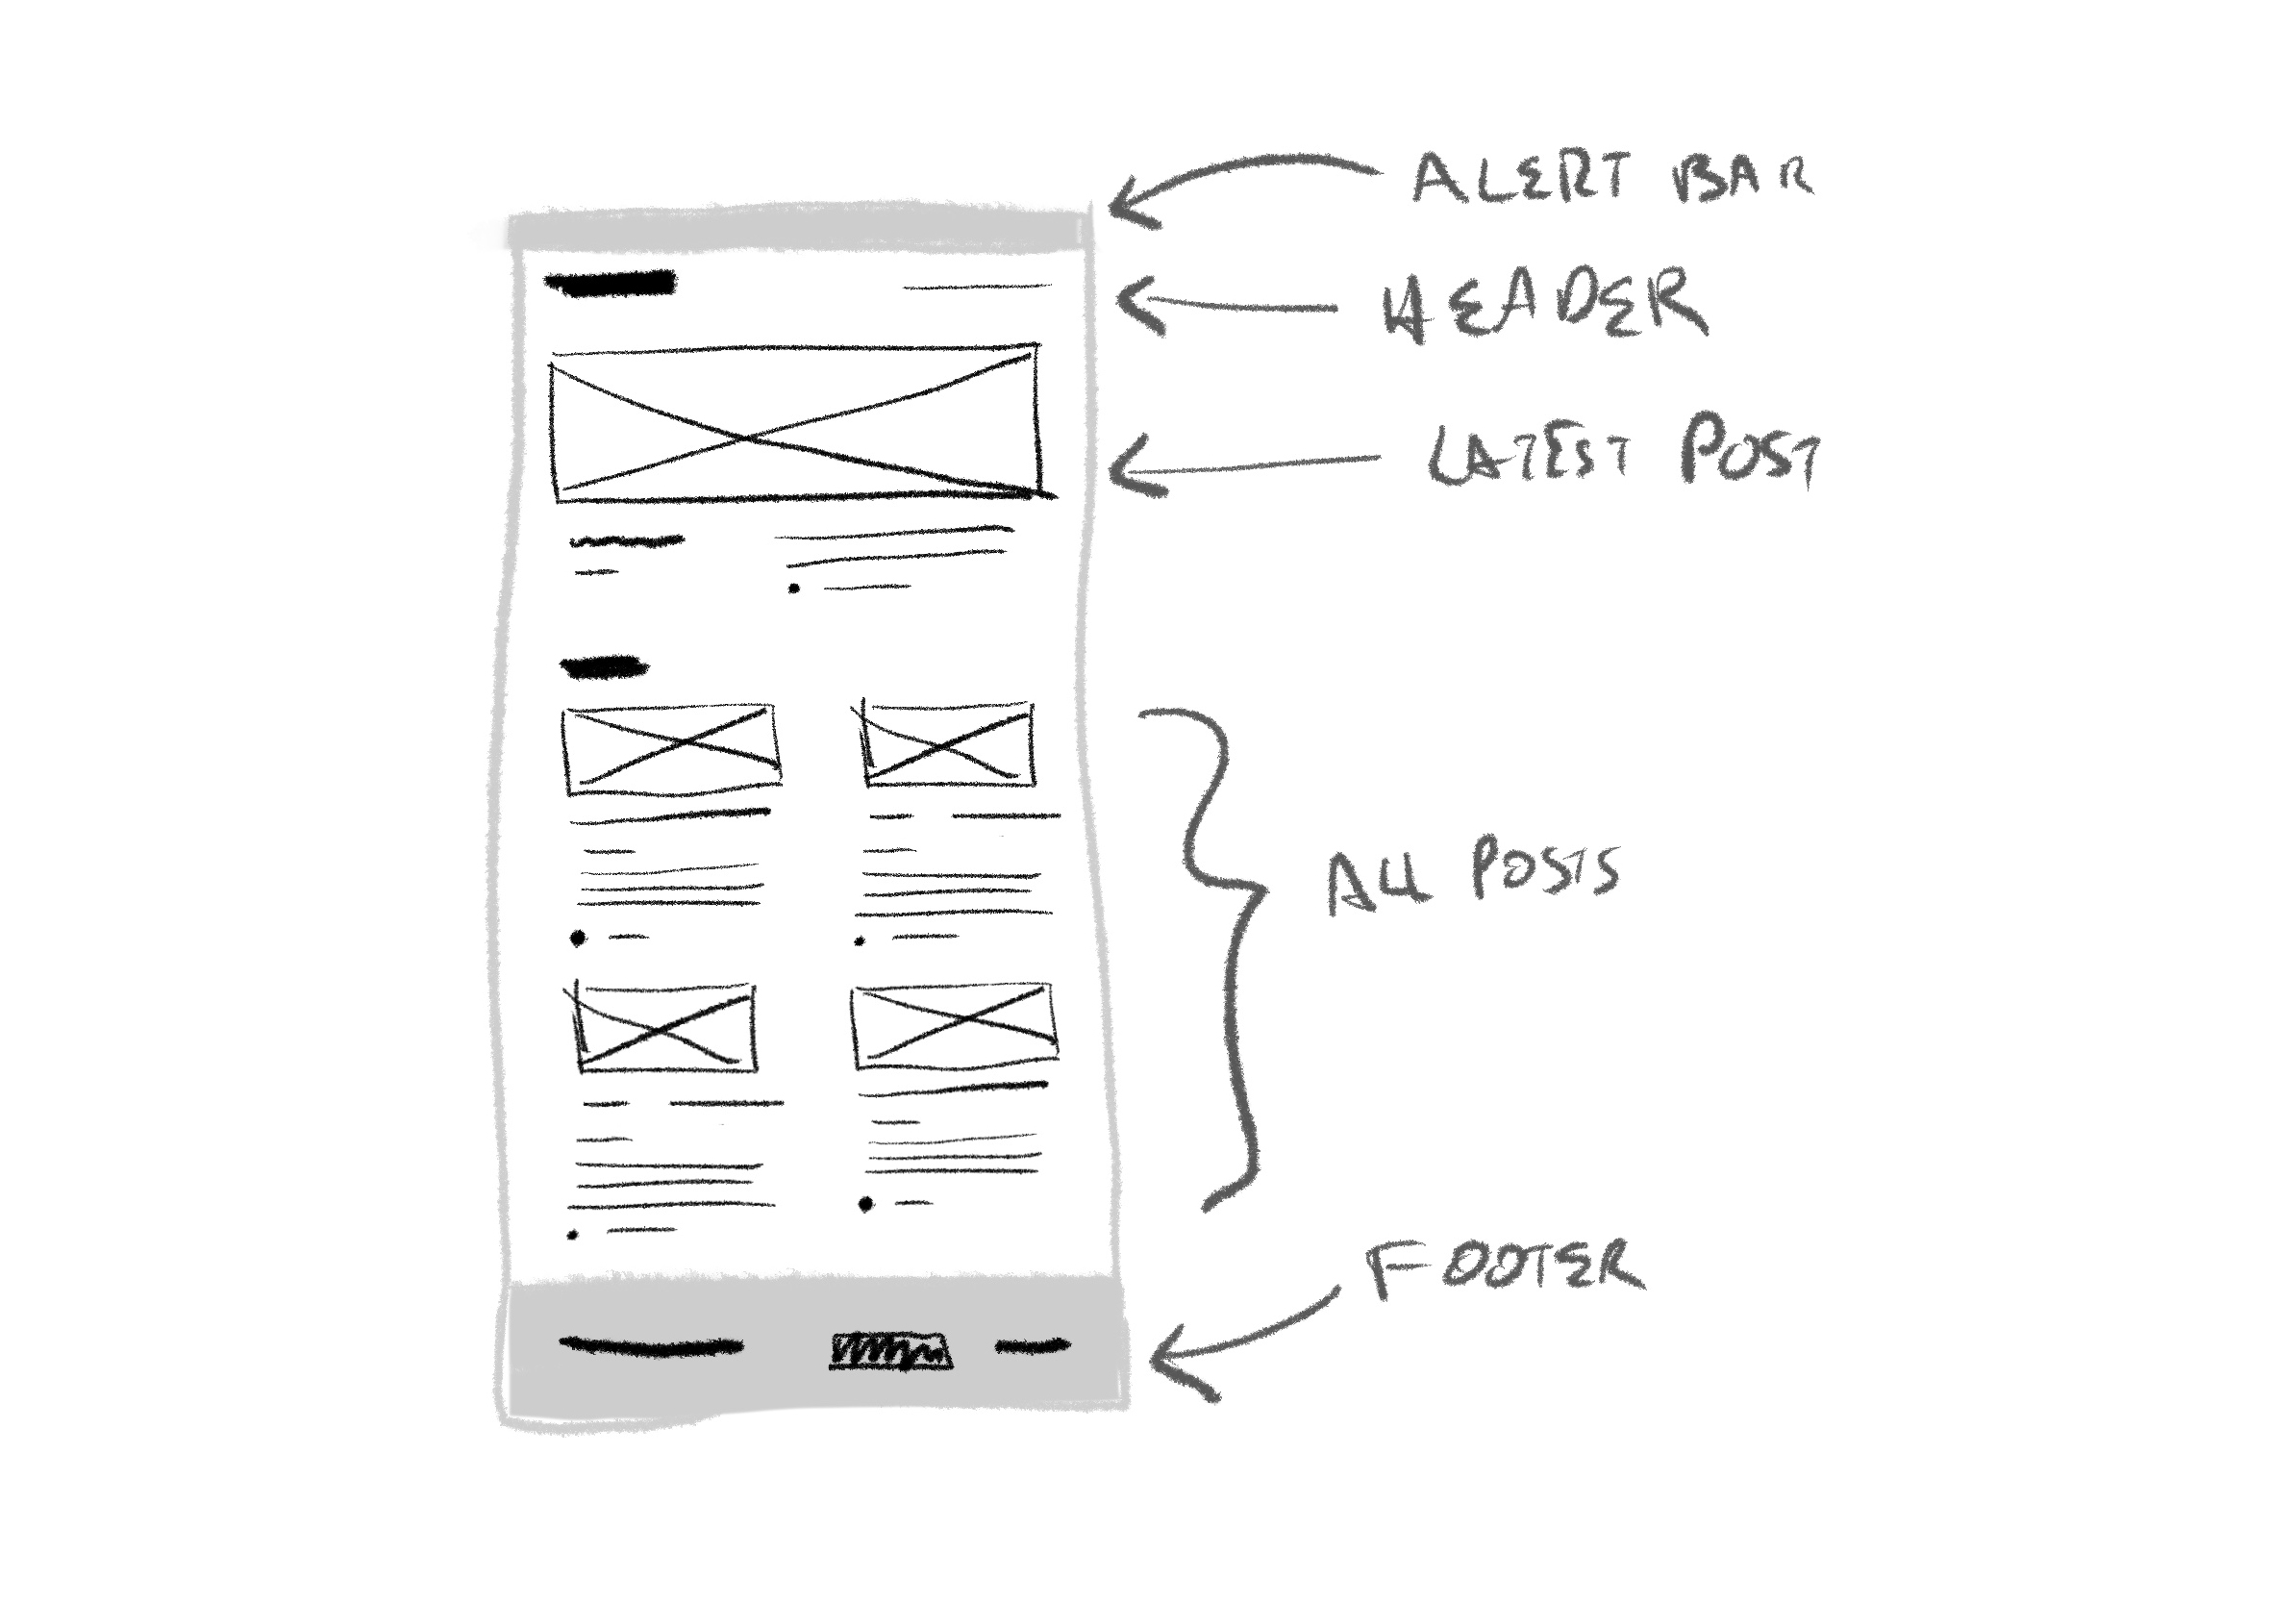 ALERT BAR
HEADER
LATEST POST
ALL POSTS
FOOTER